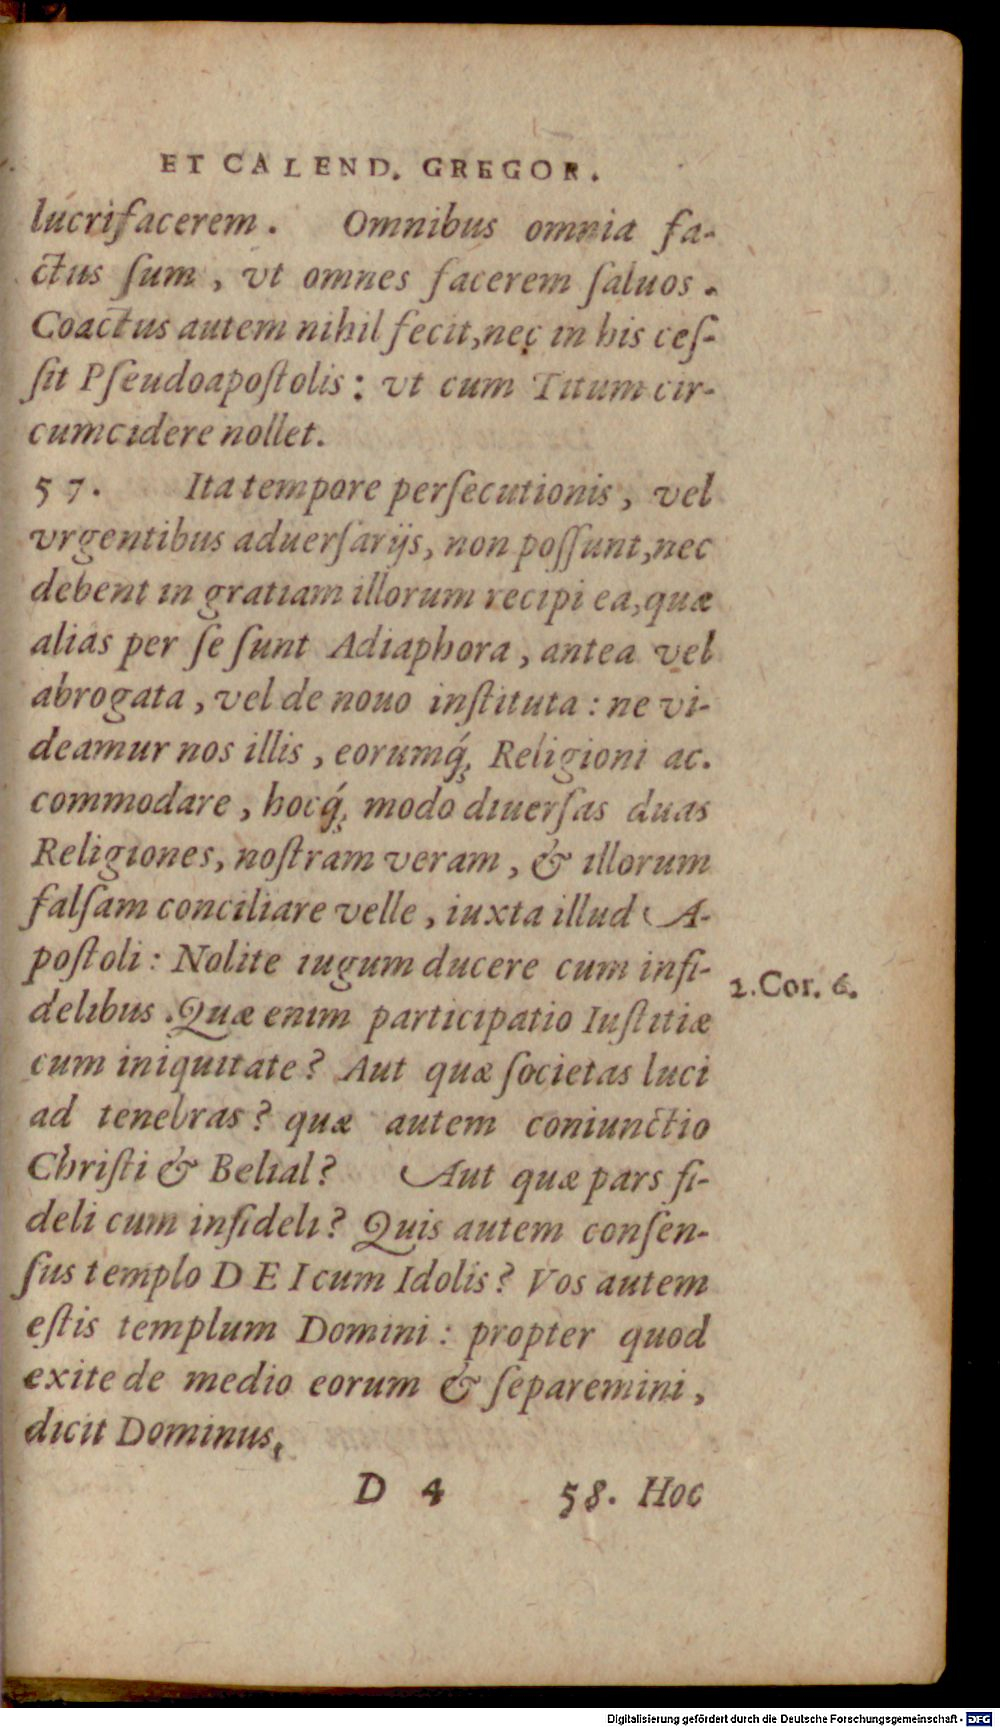 ET CALEND. GREGOR.
lucrifacerem. Omnibus omnia fa-
ctus ſum, vt omnes facerem ſaluos.
Coactus autem nihil fecit, nec in his ceſ-
ſit Pſeudoapoſtolis: vt cum Titum cir-
cumcidere nollet.
57. Ita tempore perſecutionis, vel
vrgentibus aduerſarijs, non poſſunt, nec
debent in gratiam illorum recipi ea, quæ
alias per ſe ſunt Adiaphora, antea vel
abrogata, vel de nouo inſtituta: ne vi-
deamur nos illis, eorumq́; Religioni ac.
commodare, hocq́; modo diuerſas duas
Religiones, noſtram veram, & illorum
falſam conciliare velle, iuxta illud A-
poſtoli: Nolite iugum ducere cum infi-
delibus. Quæ enim participatio Iuſtitiæ
cum iniquitate? Aut quæ ſocietas luci
ad tenebras? quæ autem coniunctio
Chriſti & Belial? Aut quæ pars fi-
deli cum infideli? Quis autem conſen-
ſus templo DEI cum Idolis? Vos autem
eſtis templum Domini: propter quod
exite de medio eorum & ſeparemini,
dicit Dominus,
2. Cor. 6.
D 4 58. Hoc
Digitalisierung gefördert durch die Deutsche Forschungsgemeinschaft - DFG